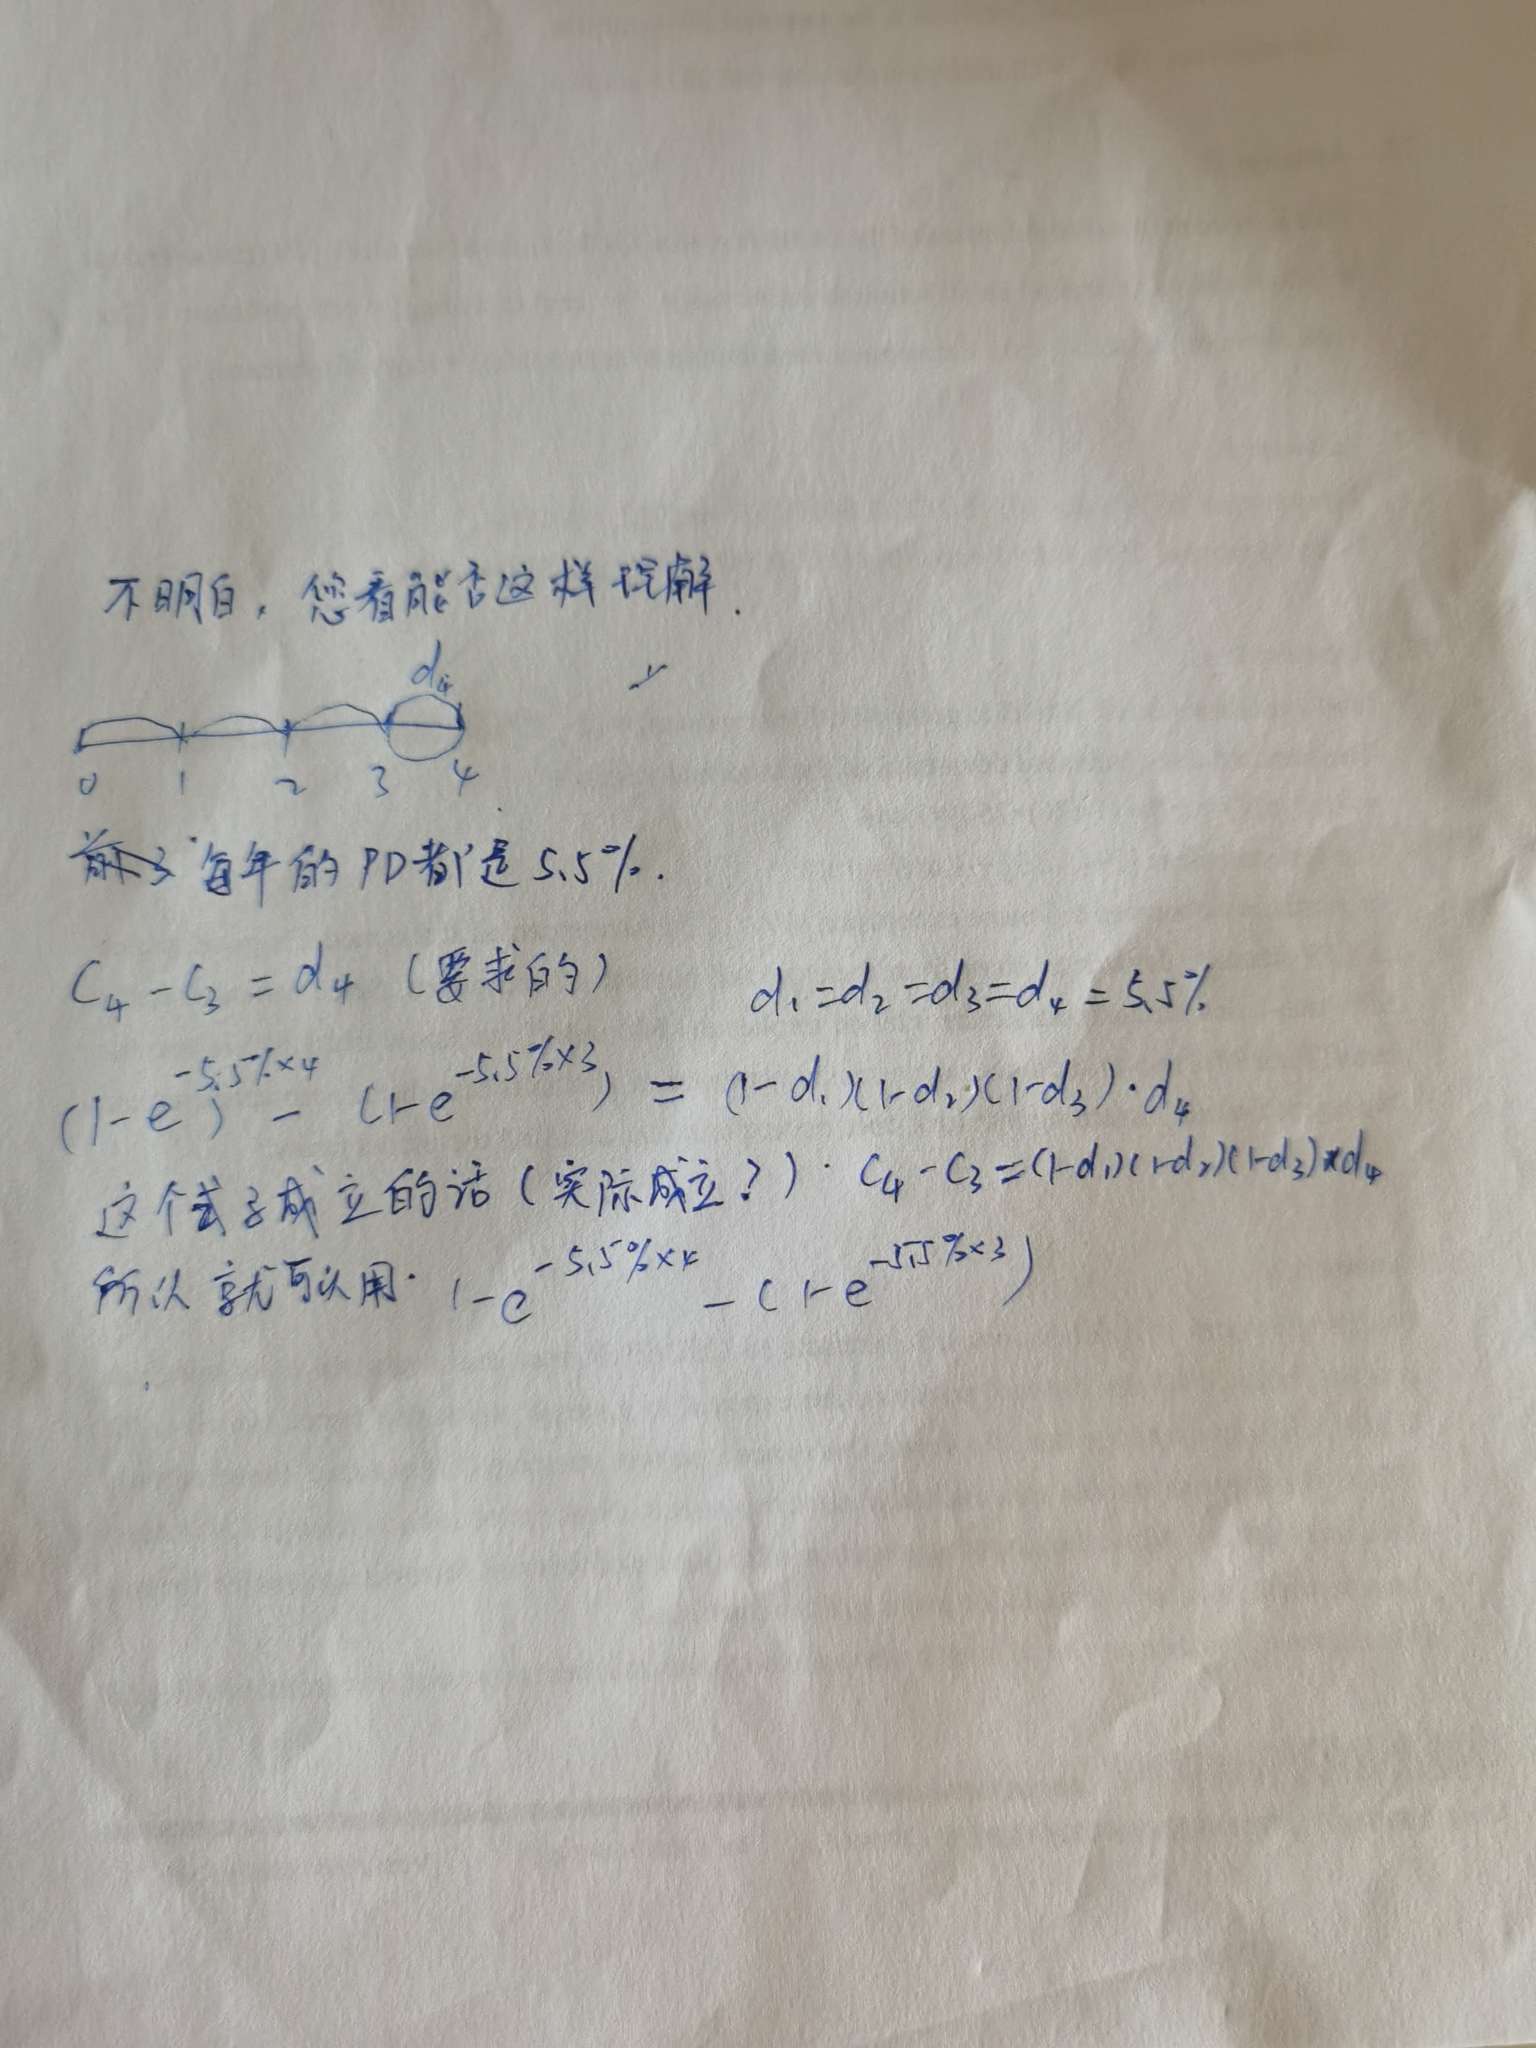 不明白，您看能否这样理解.
d₄
0 1 2 3 4
每年的PD都是5.5%.
C₄-C₃=d₄（要求的） d₁=d₂=d₃=d₄=5.5%
(1-e^-5.5%×4) - (1-e^-5.5%×3) = (1-d₁)(1-d₂)(1-d₃)·d₄
这个式子成立的话（实际成立？）. C₄-C₃=(1-d₁)(1-d₂)(1-d₃)×d₄
所以就可以用. 1-e^-5.5%×4 - (1-e^-5.5%×3)